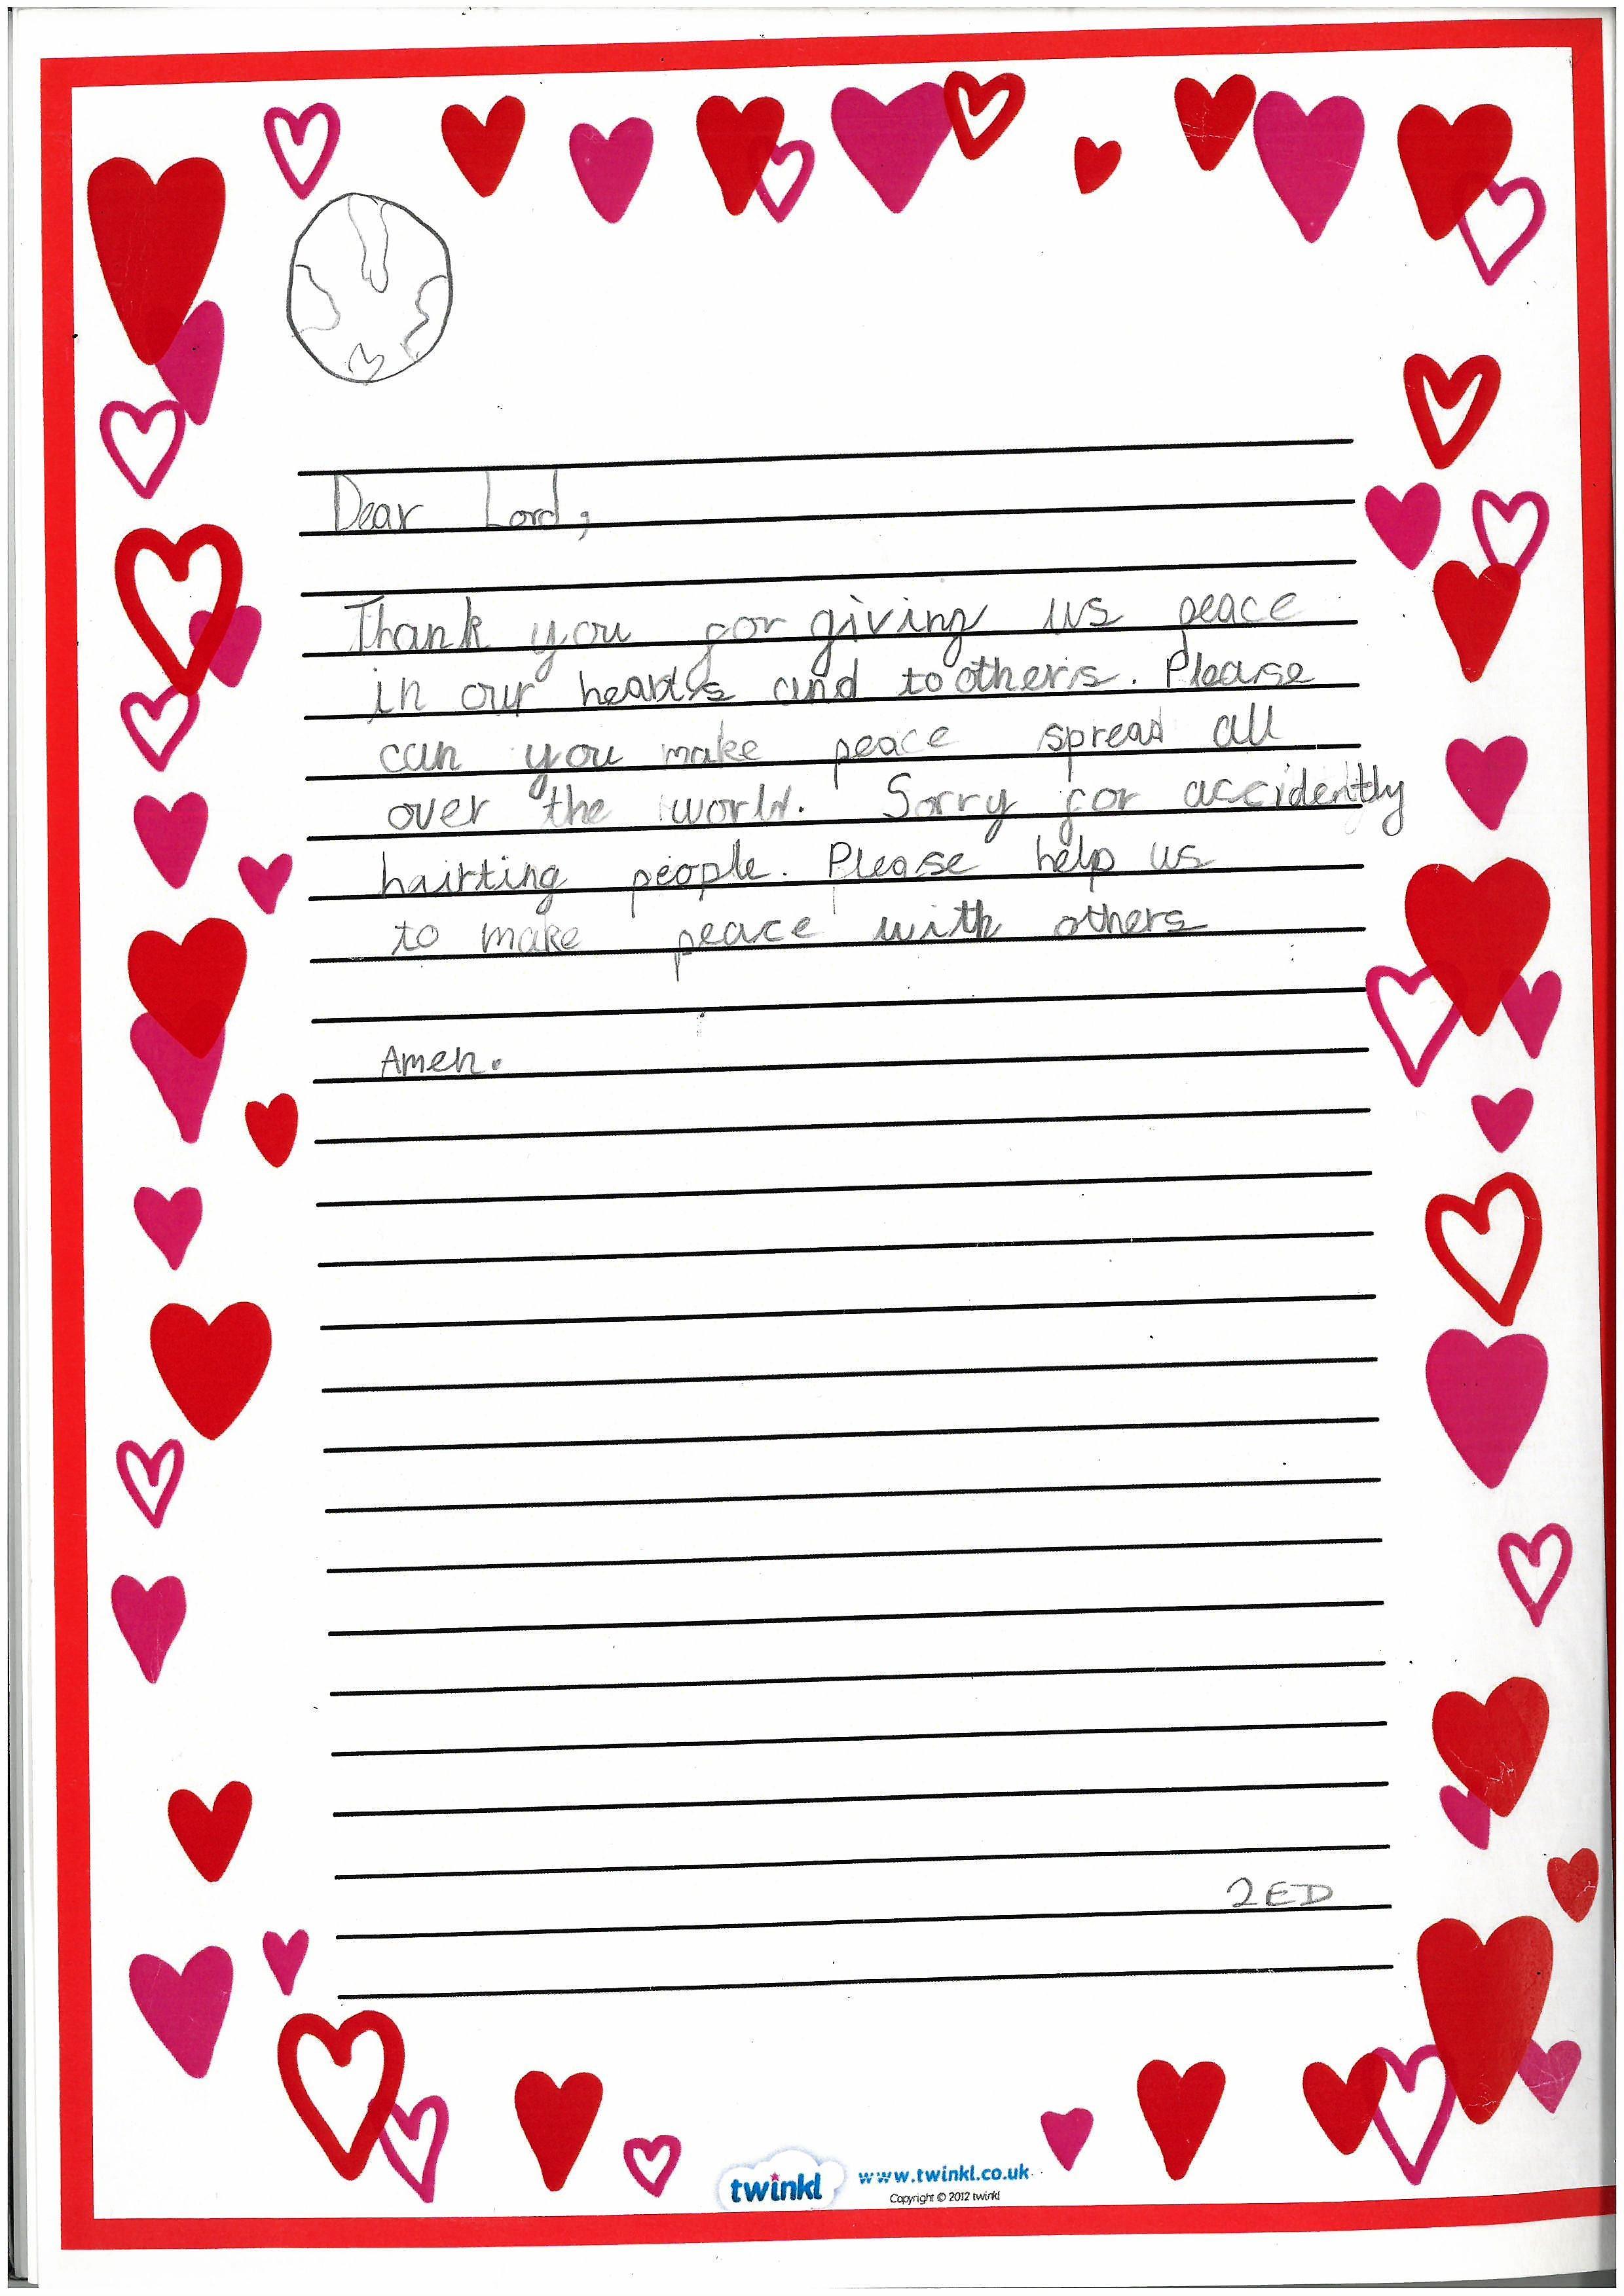 Dear Lord,
Thank you for giving us peace
in our hearts and to others. Please
can you make peace spread all
over the world. Sorry for accidently
hairting people. Please help us
to make peace with others
Amen.
2ED
twinkl www.twinkl.co.uk
Copyright © 2012 twinkl